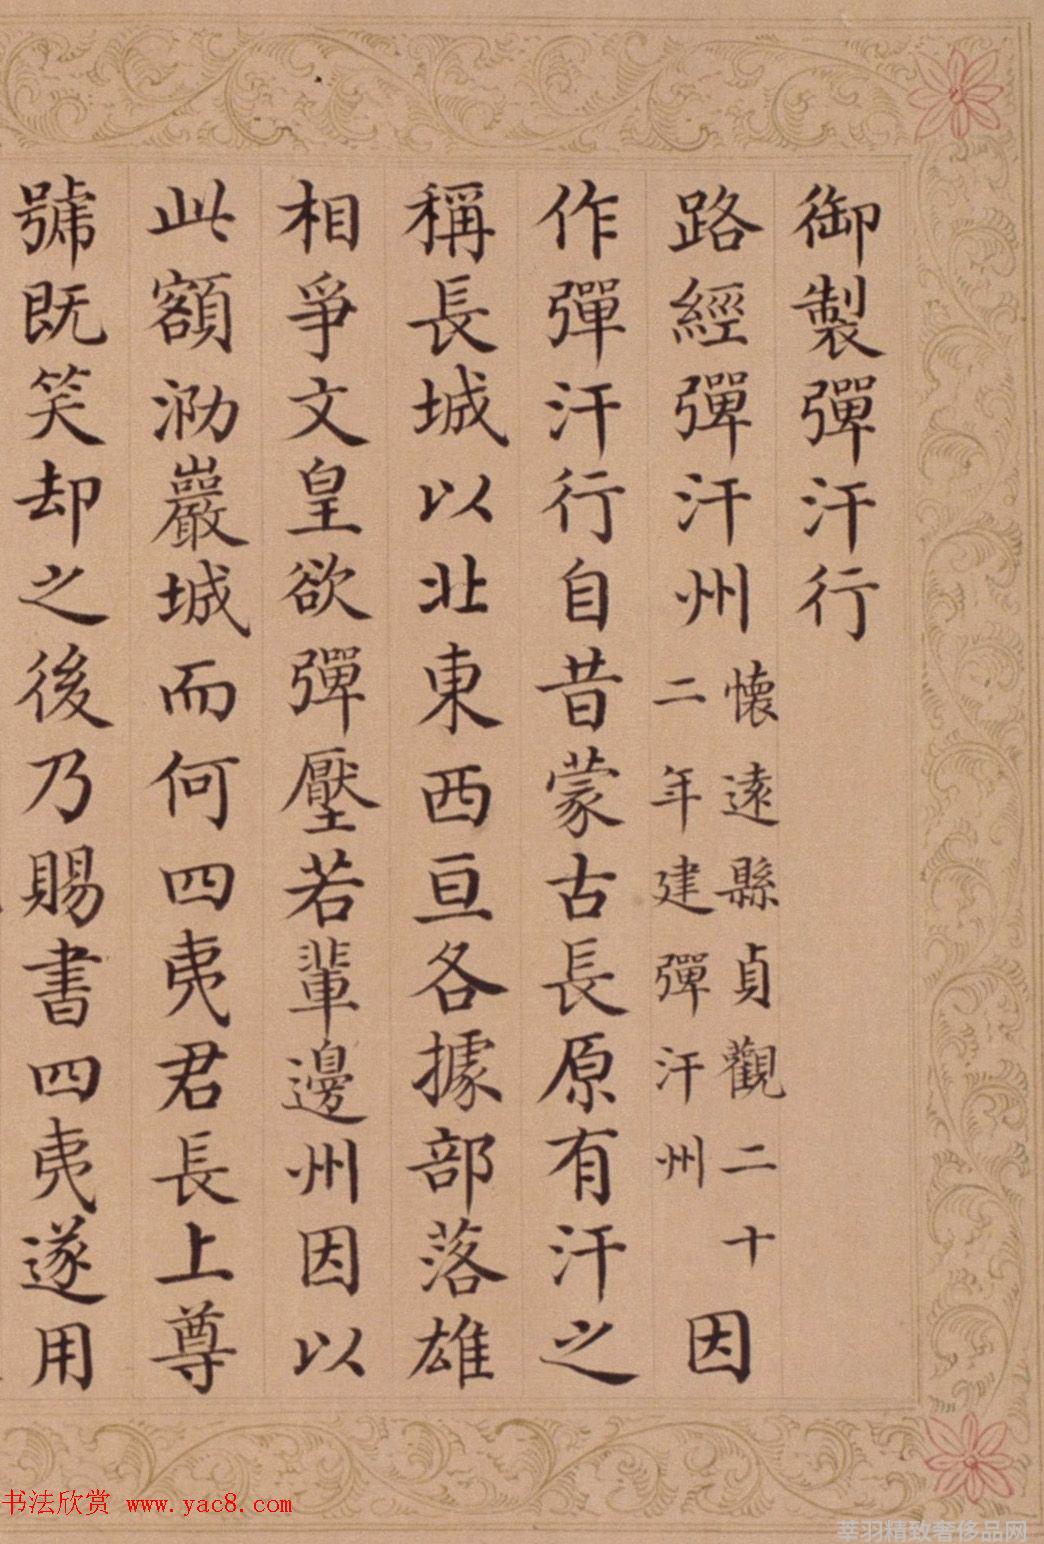 御製彈汗行
路經彈汗州懷遠縣貞觀二十二年建彈汗州因
作彈汗行自昔蒙古長原有汗之
稱長城以北東西亘各據部落雄
相爭文皇欲彈壓若輩邊州因以
此額泐巖城而何四夷君長上尊
號既笑却之後乃賜書四夷遂用
书法欣赏 www.yac8.com
莘羽精致奢侈品网